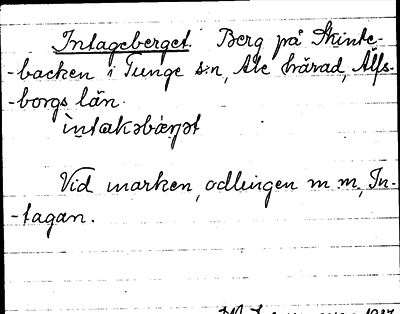 Intageberget. Berg på Skinte-
-backen i Tunge s:n, Ale härad, Älfs-
-borgs län.
ìntakəbær̥ət
Vid marken, odlingen m m, In-
-tagan.